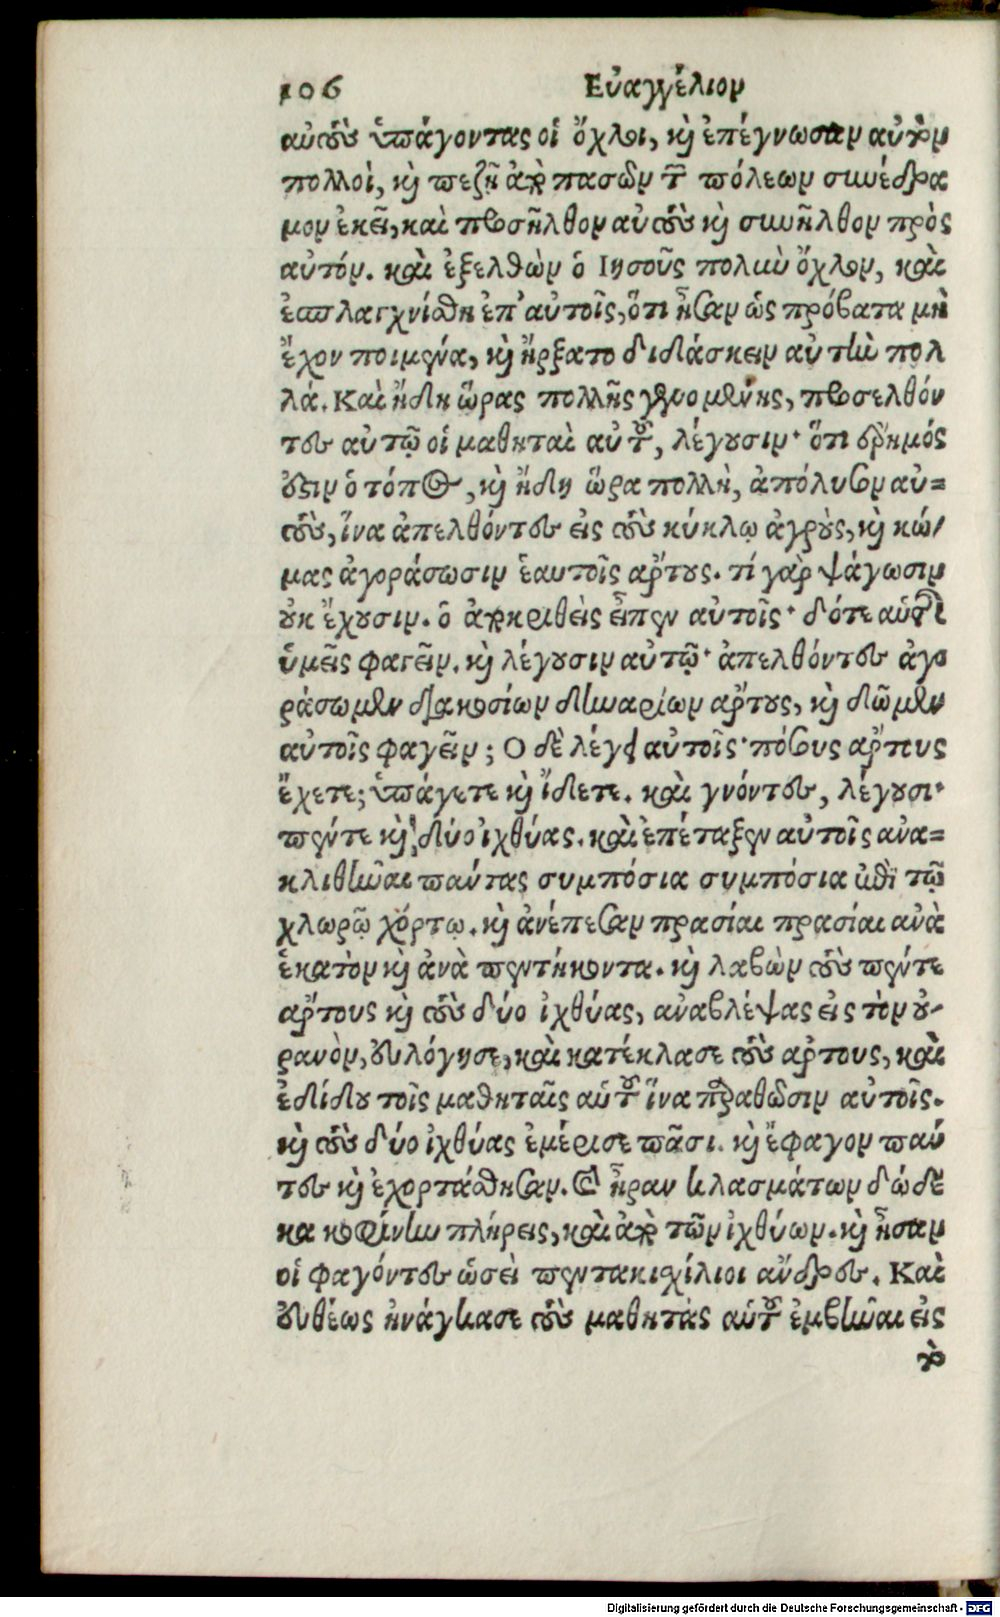 106 Εὐαγγέλιον
αὐτοὺς ὑπάγοντας οἱ ὄχλοι, καὶ ἐπέγνωσαν αὐτὸν
πολλοὶ, καὶ πεζῇ ἀπὸ πασῶν τῶν πόλεων συνέδρα
μον ἐκεῖ, καὶ προσῆλθον αὐτοὺς καὶ συνῆλθον πρὸς
αὐτόν. καὶ ἐξελθὼν ὁ Ιησοῦς πολὺν ὄχλον, καὶ
ἐσπλαγχνίσθη ἐπ' αὐτοῖς, ὅτι ἦσαν ὡς πρόβατα μὴ
ἔχοντα ποιμένα, καὶ ἤρξατο διδάσκειν αὐτοὺς πολ
λά. Καὶ ἤδη ὥρας πολλῆς γενομένης, προσελθόν
τες αὐτῷ οἱ μαθηταὶ αὐτοῦ, λέγουσιν· ὅτι ἔρημός
ἐστιν ὁ τόπος, καὶ ἤδη ὥρα πολλὴ, ἀπόλυσον αὐ=
τοὺς, ἵνα ἀπελθόντες εἰς τοὺς κύκλῳ ἀγροὺς, καὶ κώ/
μας ἀγοράσωσιν ἑαυτοῖς ἄρτους. τί γὰρ φάγωσιν
οὐκ ἔχουσιν. ὁ ἀποκριθεὶς εἶπεν αὐτοῖς· δότε αὐτοῖς
ὑμεῖς φαγεῖν. καὶ λέγουσιν αὐτῷ· ἀπελθόντες ἀγο
ράσωμεν διακοσίων δηναρίων ἄρτους, καὶ δῶμεν
αὐτοῖς φαγεῖν; Ο δὲ λέγει αὐτοῖς· πόσους ἄρτους
ἔχετε; ὑπάγετε καὶ ἴδετε. καὶ γνόντες, λέγουσι·
πέντε καὶ δύο ἰχθύας. καὶ ἐπέταξεν αὐτοῖς ἀνα=
κλιθῆναι πάντας συμπόσια συμπόσια ἐπὶ τῷ
χλωρῷ χόρτῳ. καὶ ἀνέπεσαν πρασίαι πρασίαι ἀνὰ
ἑκατὸν καὶ ἀνὰ πεντήκοντα. καὶ λαβὼν τοὺς πέντε
ἄρτους καὶ τοὺς δύο ἰχθύας, ἀναβλέψας εἰς τὸν οὐ-
ρανὸν, εὐλόγησε, καὶ κατέκλασε τοὺς ἄρτους, καὶ
ἐδίδου τοῖς μαθηταῖς αὑτοῦ ἵνα παραθῶσιν αὐτοῖς.
καὶ τοὺς δύο ἰχθύας ἐμέρισε πᾶσι. καὶ ἔφαγον πάν
τες καὶ ἐχορτάσθησαν. καὶ ἦραν κλασμάτων δώδε
κα κοφίνους πλήρεις, καὶ ἀπὸ τῶν ἰχθύων. καὶ ἦσαν
οἱ φαγόντες ὡσεὶ πεντακιχίλιοι ἄνδρες. Καὶ
εὐθέως ἠνάγκασε τοὺς μαθητὰς αὑτοῦ ἐμβῆναι εἰς
τὸ
Digitalisierung gefördert durch die Deutsche Forschungsgemeinschaft - DFG